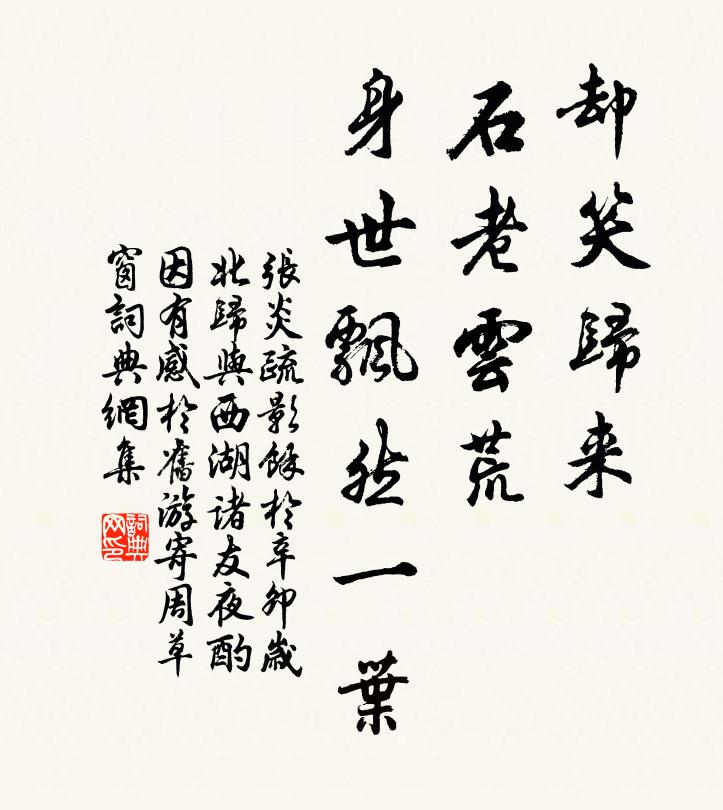 却笑歸来
石老雲荒
身世飄然一葉
張炎疏影餘於辛卯歲
北歸與西湖諸友夜酌
因有感於舊游寄周草
窗詞典網集
詞典网印